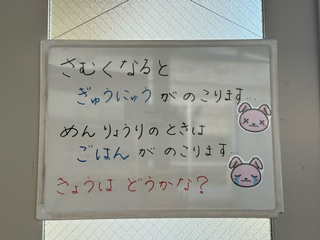 さむくなると
ぎゅうにゅうがのこります…
めんりょうりのときは
ごはんがのこります…
きょうはどうかな？